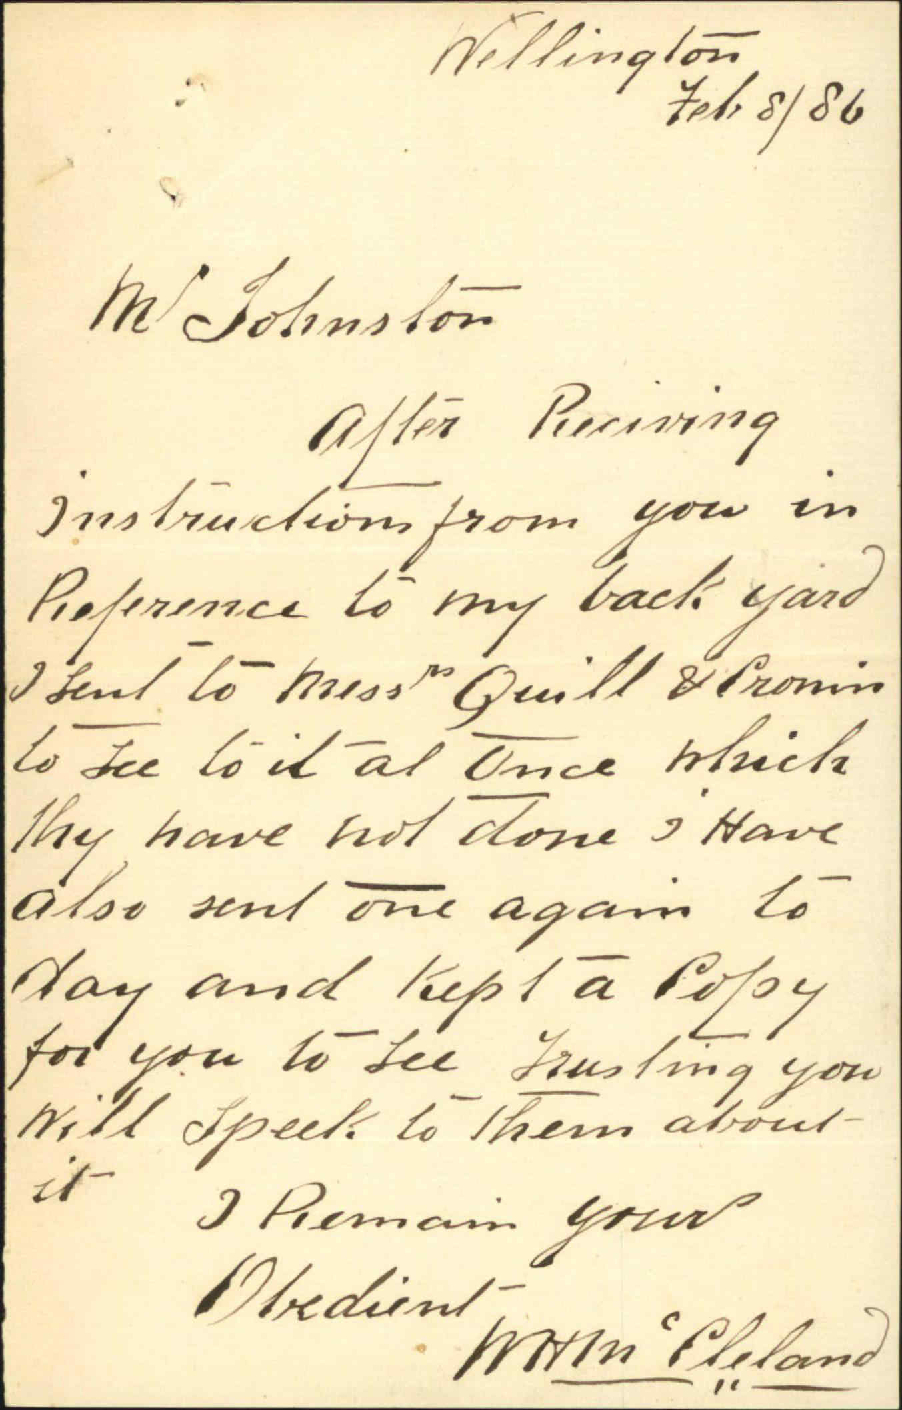 Wellington
Feb 8/86
Mr Johnston
After Reciving
instructions from you in
Reference to my back yard
I sent to Messrs Quill & Cronin
to see to it at Once which
thy have not done i Have
also sent one again to
day and Kept a Copy
for you to see Trusting you
Will Speek to Them about
it
I Remain your
Obedient
WHMcCleland